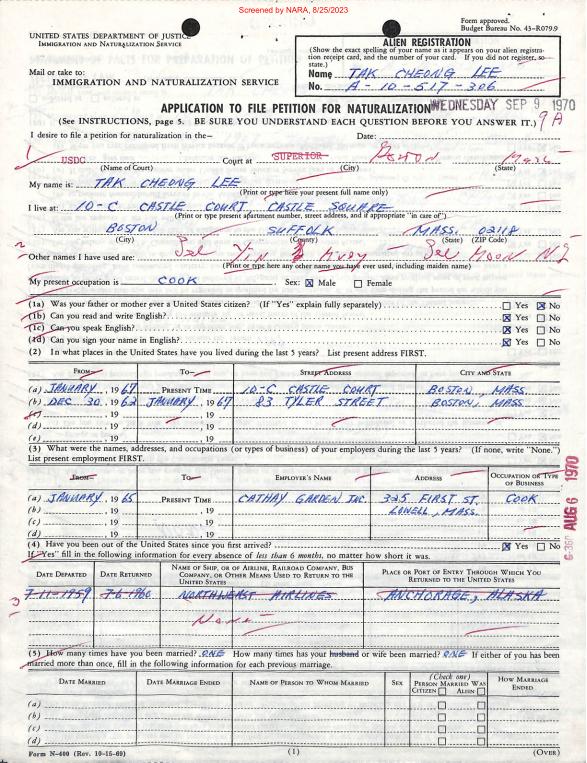 Screened by NARA, 8/25/2023
UNITED STATES DEPARTMENT OF JUSTICE
IMMIGRATION AND NATURALIZATION SERVICE
Form approved.
Budget Bureau No. 43-R079.9
ALIEN REGISTRATION
(Show the exact spelling of your name as it appears on your alien registration receipt card, and the number of your card. If you did not register, so state.)
Name TAK CHEONG LEE
No. A-10-517-306
Mail or take to:
IMMIGRATION AND NATURALIZATION SERVICE
APPLICATION TO FILE PETITION FOR NATURALIZATION
WEDNESDAY SEP 9 1970
9 A
(See INSTRUCTIONS, page 5. BE SURE YOU UNDERSTAND EACH QUESTION BEFORE YOU ANSWER IT.)
I desire to file a petition for naturalization in the—
Date:
1
USDC Court at SUPERIOR Boston Mass
(Name of Court) (City) (State)
My name is: TAK CHEONG LEE
(Print or type here your present full name only)
I live at: 10-C CASTLE COURT CASTLE SQUARE
(Print or type present apartment number, street address, and if appropriate "in care of")
BOSTON SUFFOLK MASS. 02118
(City) (County) (State) (ZIP Code)
2
Other names I have used are:
(Print or type here any other name you have ever used, including maiden name)
My present occupation is: COOK Sex: ☒ Male ☐ Female
(1a) Was your father or mother ever a United States citizen? (If "Yes" explain fully separately) ☐ Yes ☒ No
(1b) Can you read and write English? ☒ Yes ☐ No
(1c) Can you speak English? ☒ Yes ☐ No
(1d) Can you sign your name in English? ☒ Yes ☐ No
(2) In what places in the United States have you lived during the last 5 years? List present address FIRST.
FROM— TO— STREET ADDRESS CITY AND STATE
(a) JANUARY, 1967 PRESENT TIME 10-C CASTLE COURT BOSTON, MASS.
(b) DEC 30, 1962 JANUARY, 1967 83 TYLER STREET BOSTON, MASS
(c) , 19 , 19
(d) , 19 , 19
(e) , 19 , 19
(3) What were the names, addresses, and occupations (or types of business) of your employers during the last 5 years? (If none, write "None.")
List present employment FIRST.
FROM— TO— EMPLOYER'S NAME ADDRESS OCCUPATION OR TYPE OF BUSINESS
(a) JANUARY, 1965 PRESENT TIME CATHAY GARDEN INC. 325 FIRST ST. COOK
(b) , 19 , 19 LOWELL, MASS.
(c) , 19 , 19
(d) , 19 , 19
AUG 6 1970
(4) Have you been out of the United States since you first arrived? ☒ Yes ☐ No
If "Yes" fill in the following information for every absence of less than 6 months, no matter how short it was.
DATE DEPARTED DATE RETURNED NAME OF SHIP, OR OF AIRLINE, RAILROAD COMPANY, BUS COMPANY, OR OTHER MEANS USED TO RETURN TO THE UNITED STATES PLACE OR PORT OF ENTRY THROUGH WHICH YOU RETURNED TO THE UNITED STATES
3
7-11-1959 7-6-1960 NORTHWEST AIRLINES ANCHORAGE, ALASKA
None
(5) How many times have you been married? ONE How many times has your husband or wife been married? ONE If either of you has been
married more than once, fill in the following information for each previous marriage.
DATE MARRIED DATE MARRIAGE ENDED NAME OF PERSON TO WHOM MARRIED SEX (Check one) PERSON MARRIED WAS CITIZEN ☐ ALIEN ☐ HOW MARRIAGE ENDED
(a) ☐ ☐
(b) ☐ ☐
(c) ☐ ☐
(d) ☐ ☐
Form N-400 (Rev. 10-15-69) (1) (OVER)